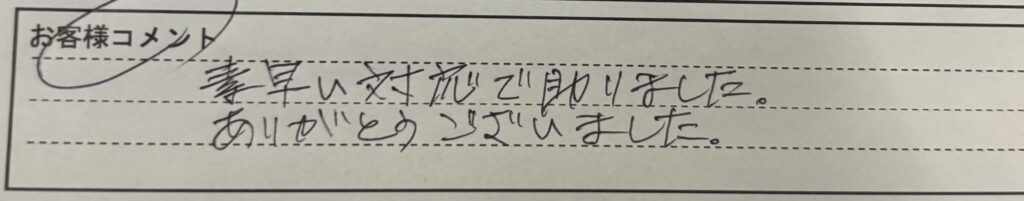 お客様コメント
素早い対応で助りました。
ありがとうございました。